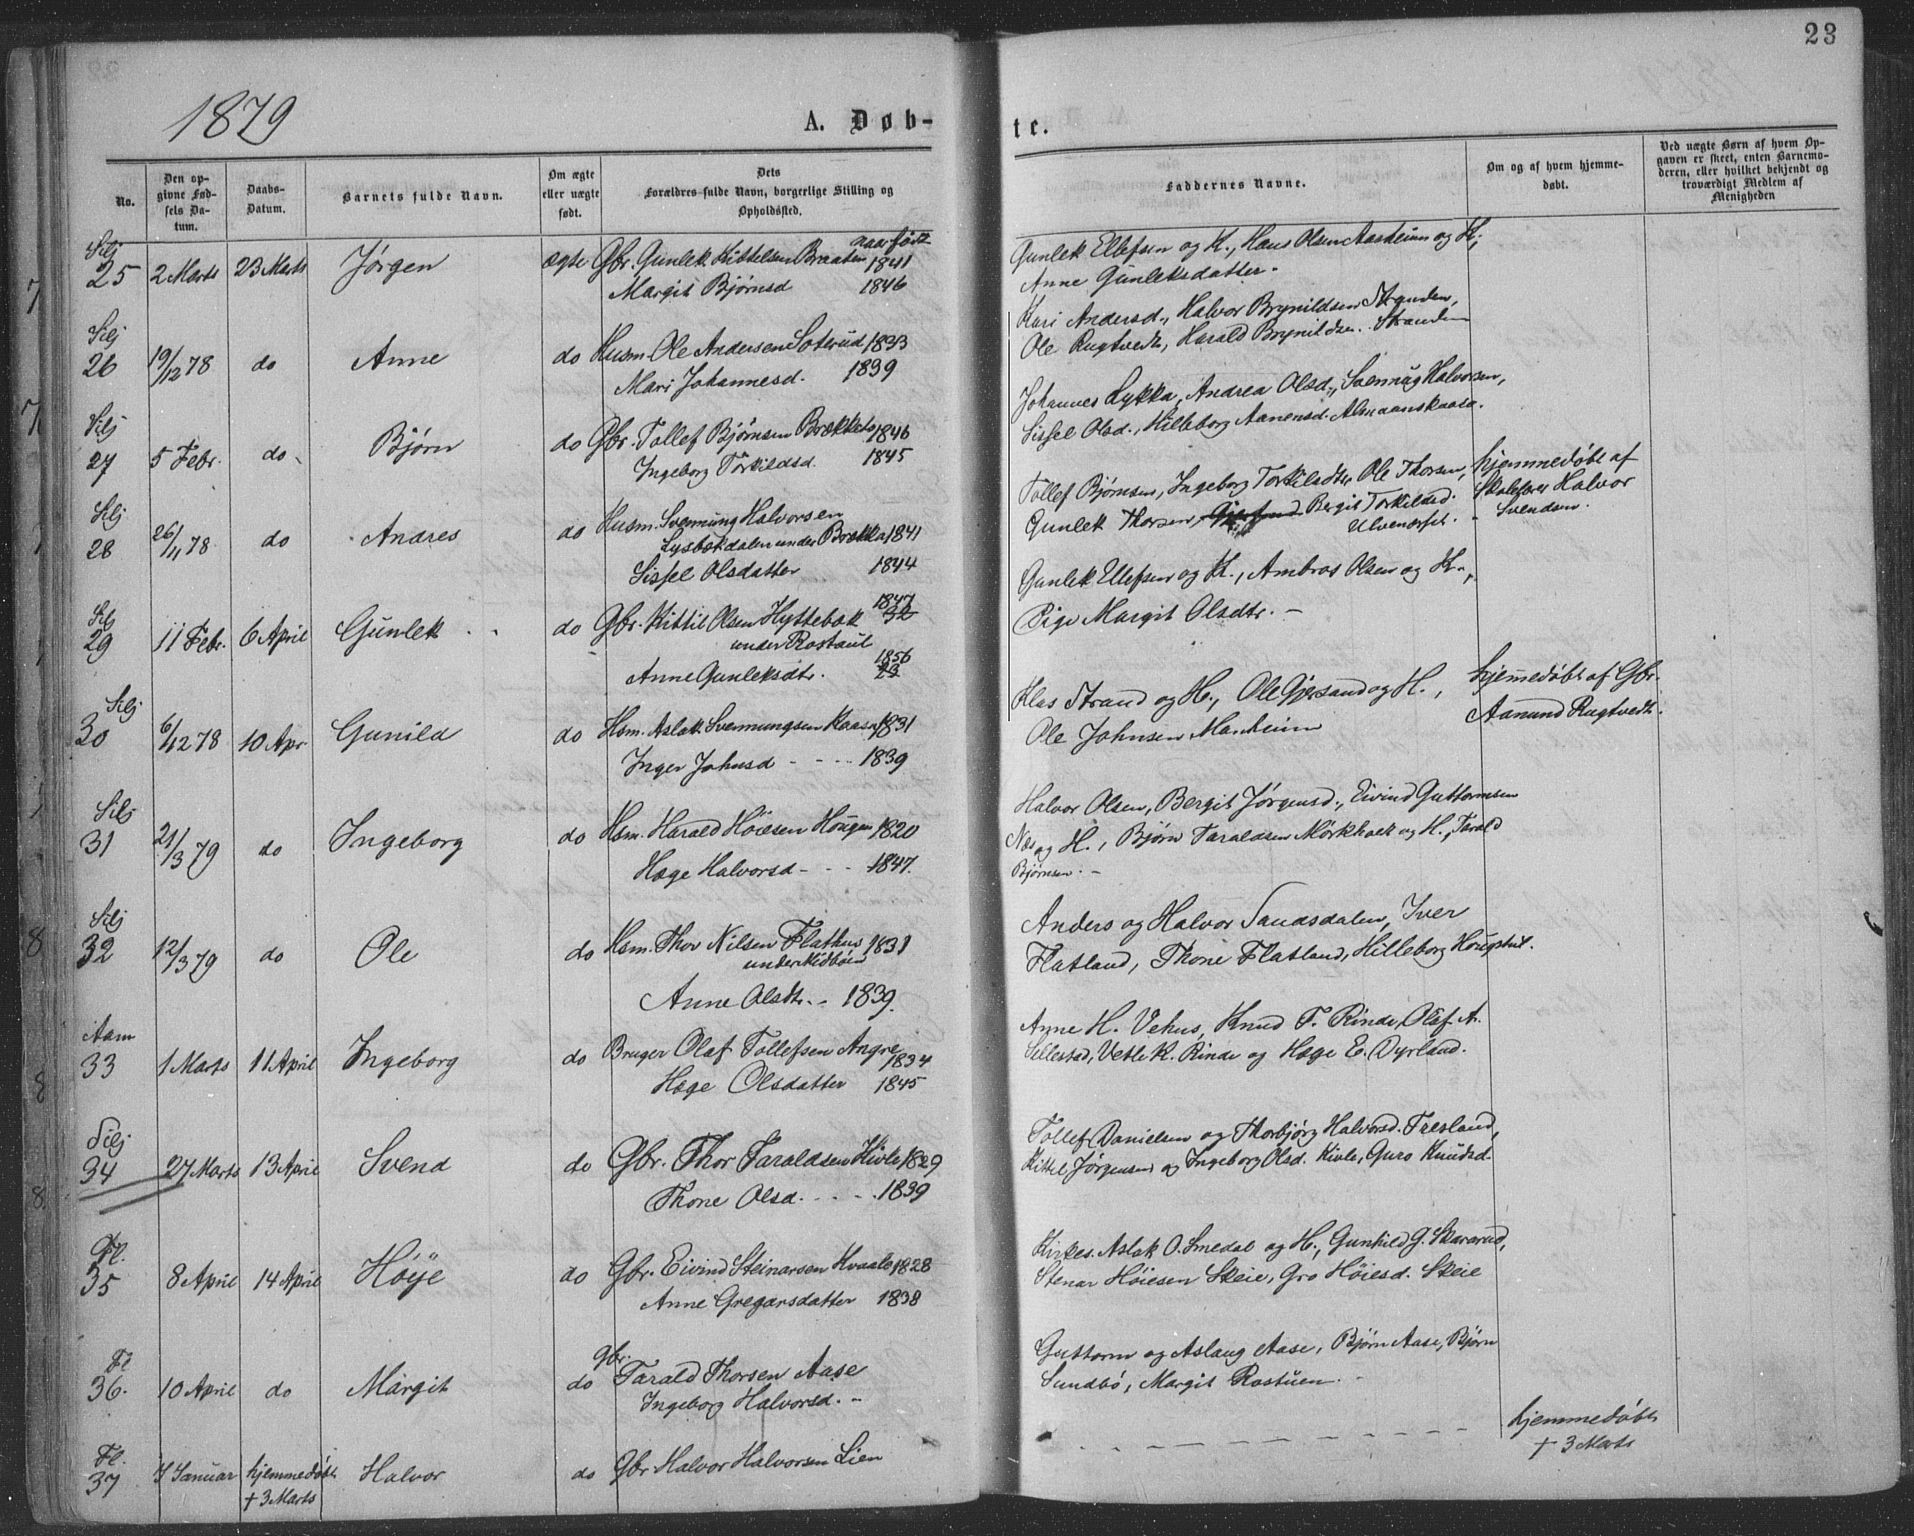 23
1879
A. Døb-
te.
No.
Den op-
givne Fød-
sels Da-
tum.
Daabs-
Datum.
Barnets fulde Navn.
Om ægte
eller uægte
født.
Dets
Forældres fulde Navn, borgerlige Stilling og
Opholdssted.
Faddernes Navne.
Om og af hvem hjemme-
døbt.
Ved uægte Børn af hvem Op-
gaven er skeet, enten Barnemo-
deren, eller hvilket bekjendt og
troværdigt Medlem af
Menigheden
naar født
Silj
25 2 Marts 23 Marts Jørgen ægte Gbr. Gunlek Kittelsen Braaten 1841
Margit Bjørnsd 1846
Gunlek Ellefsen og K., Hans Olsen Aasheim og K,
Anne Gunleksdatter.
Silj
26 19/12 78 do Anne do Husm. Ole Andersen Soterud 1833
Mari Johannesd. 1839
Kari Andersd., Halvor Brynildsen Stranden,
Ole Rugtvedt, Harald Brynildsen Stranden
Silj
27 5 Febr. do Bjørn do Gbr. Tollef Bjørnsen Brækka 1846
Ingeborg Torkildsd. 1845
Johannes Lykka, Andrea Olsd., Svennug Halvorsen,
Sissel Olsd., Hilleborg Aanensd. Almaanskaasa.
Silj
28 26/11 78 do Andres do Husm. Svennung Halvorsen
Lysbækdalen under Brækka 1841
Sissel Olsdatter 1844
Tollef Bjørnsen, Ingeborg Torkilsdtr, Ole Thorsen,
Gunlek Thorsen, Bergit Torkildsd.
Ulvenæset.
hjemmedøbt af
Skolelærer Halvor
Svendsen.
Silj
29 11 Febr. 6 April Gunlek do Gbr. Kittil Olsen Hyttebæk 1847
32
under Rostaul
Anne Gunleksdtr. 1856
23
Gunlek Ellefsen og K., Ambros Olsen og K.,
Pige Margit Olsdtr. -
Silj
30 6/12 78 10 Apr Gunild do Hsm. Aslak Svennungsen Kaasa 1831
Inger Johnsd - - - - 1839
Klas Strand og H., Ole Gjersand og H.,
Ole Johnsen Manheim
hjemmedøbt af Gbr.
Aanund Rugtvedt.
Silj
31 21/3 79 do Ingeborg do Hsm. Harald Höiesen Hougen 1820
Hæge Halvorsd - - - 1847.
Halvor Olsen, Bergit Jørgensd., Eivind Guttormsen
Næs og H., Bjørn Taraldsen Mørkhølt og H., Tarald
Bjørnsen. -
Silj
32 12/3 79 do Ole do Hsm. Thor Nilsen Flathus 1831
under Kidböen
Anne Olsdtr. - 1839.
Anders og Halvor Sandsdalen, Iver
Flatland, Thone Flatland, Hilleborg Hougstul.
Aam
33 1 Marts 11 April Ingeborg do Bruger Olaf Tollefsen Angre
1834
Hæge Olsdatter 1845
Anne H. Vehus, Knud T. Rinde, Olaf A.
Sellestad, Vetle K. Rinde og Hæge E. Dyrland.
Silj
34 27 Marts 13 April Svend do Gbr. Thor Taraldsen Kivle 1829
Thone Olsd. - - - - 1839
Tollef Danielsen og Thorbjørg Halvorsd. Tresland,
Kittel Jørgensen og Ingeborg Olsd. Kivle, Guro Knudsd.
Fl.
35 8 April 14 April Höije do Gbr. Eivind Steinarsen Kvaale 1828
Anne Gregarsdatter 1838
Kirkes. Aslak O. Smedal og H., Gunhild G. Skararud,
Stenar Höiesen Skeie, Gro Höiesd. Skeie
Fl
36. 10 April do Margit do Gbr.
Tarald Thorsen Aase
Ingeborg Halvorsd. -
Guttorm og Aslaug Aase, Bjørn Aase, Bjørn
Sundbö, Margit Rostuen. -
Fl.
37 7 Januar hjemmedøbt
+ 3 Marts
Halvor do Gbr Halvor Halvorsen Lien
hjemmedøbt
+ 3 Marts